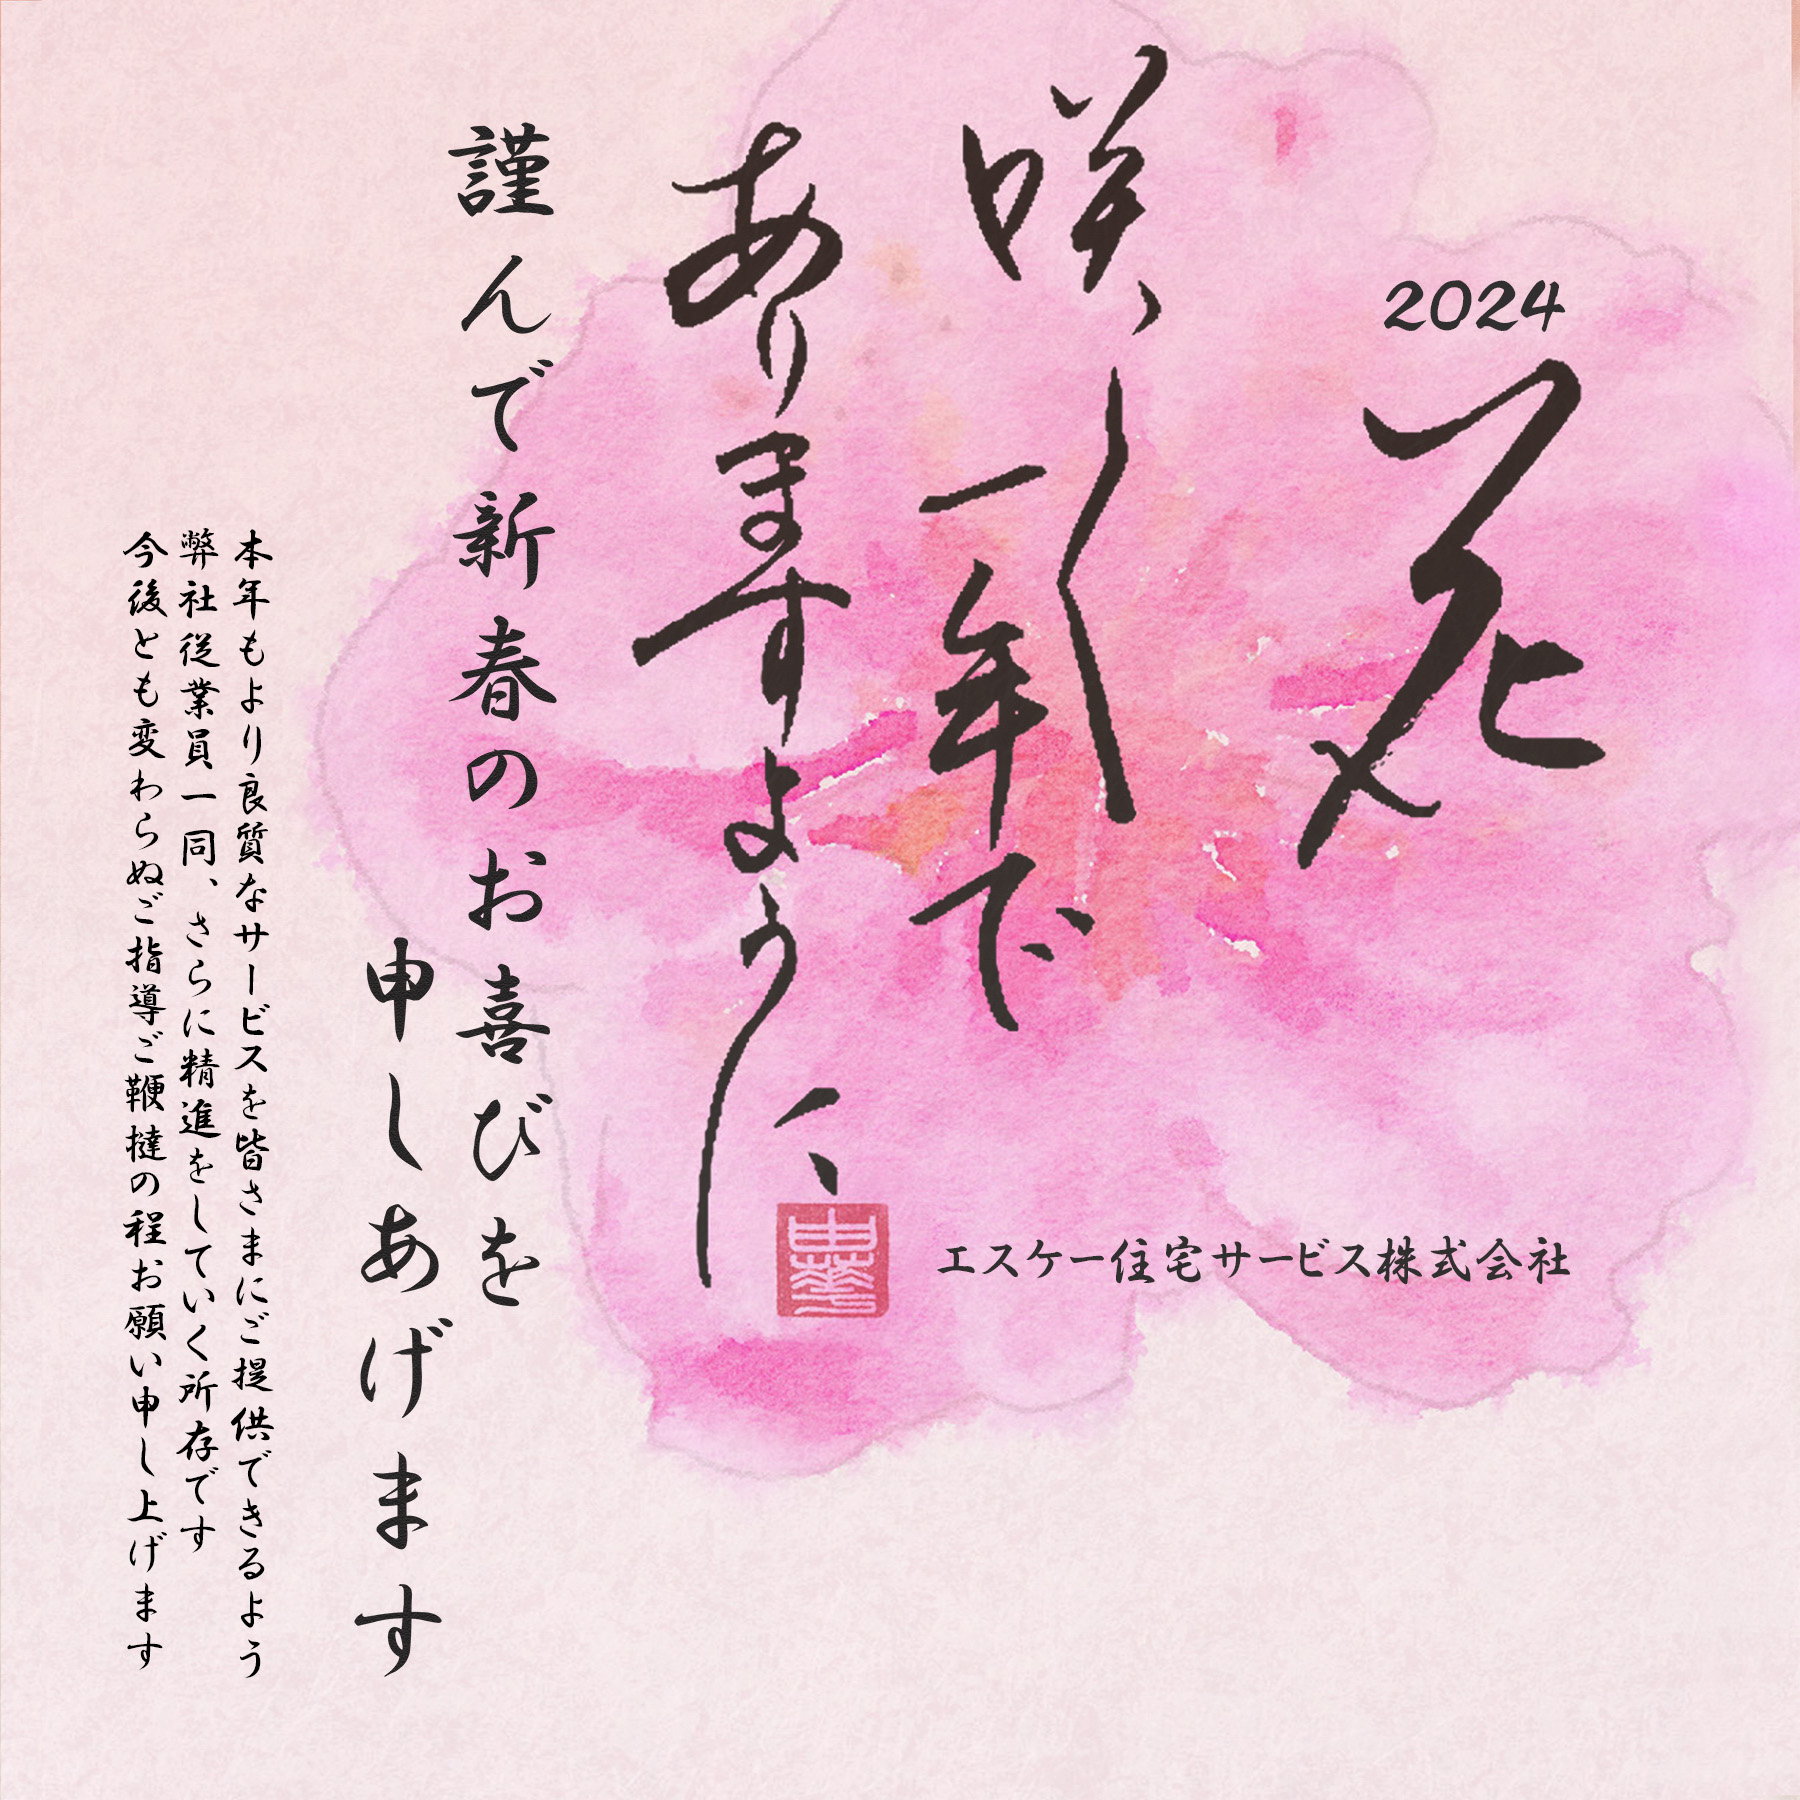 2024
花
咲く一年で
ありますように
謹んで新春のお喜びを
申しあげます
本年もより良質なサービスを皆さまにご提供できるよう
弊社従業員一同、さらに精進をしていく所存です
今後とも変わらぬご指導ご鞭撻の程お願い申し上げます
エスケー住宅サービス株式会社